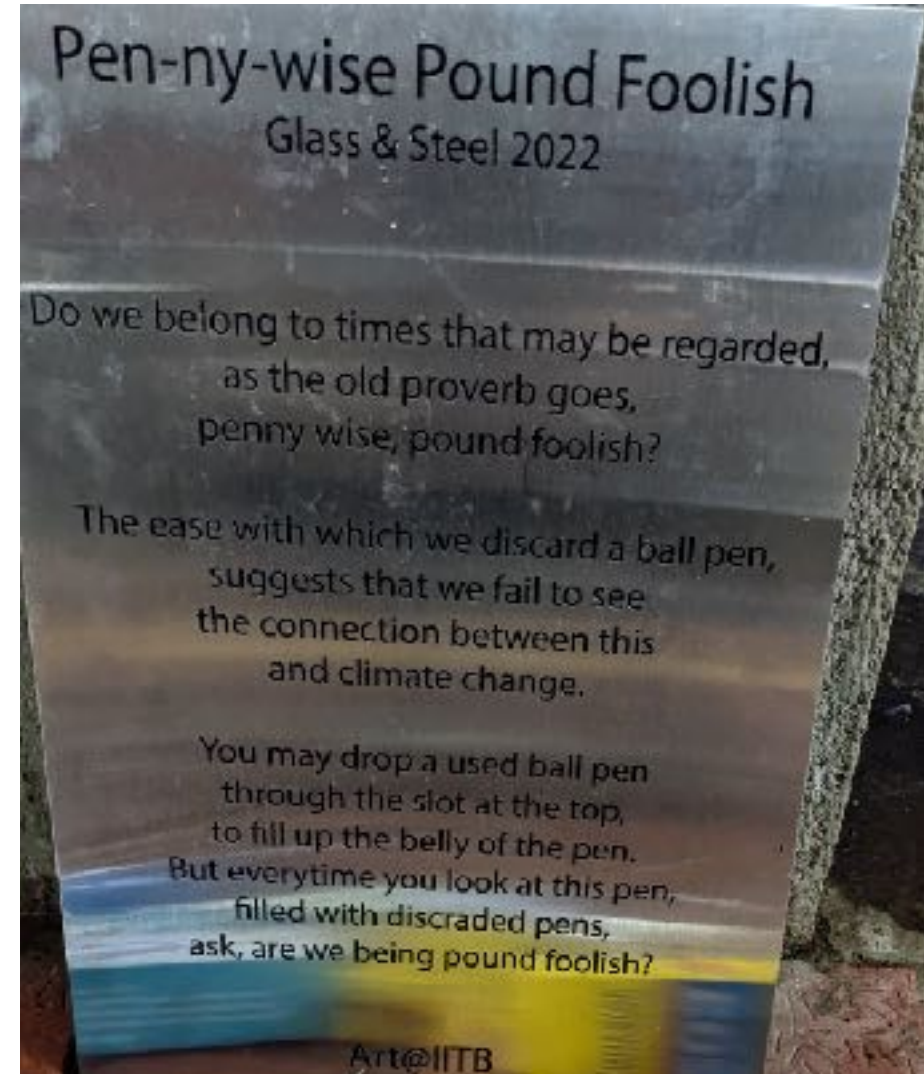 Pen-ny-wise Pound Foolish
Glass & Steel 2022
Do we belong to times that may be regarded,
as the old proverb goes,
penny wise, pound foolish?
The ease with which we discard a ball pen,
suggests that we fail to see
the connection between this
and climate change.
You may drop a used ball pen
through the slot at the top,
to fill up the belly of the pen.
But everytime you look at this pen,
filled with discraded pens,
ask, are we being pound foolish?
Art@IITB